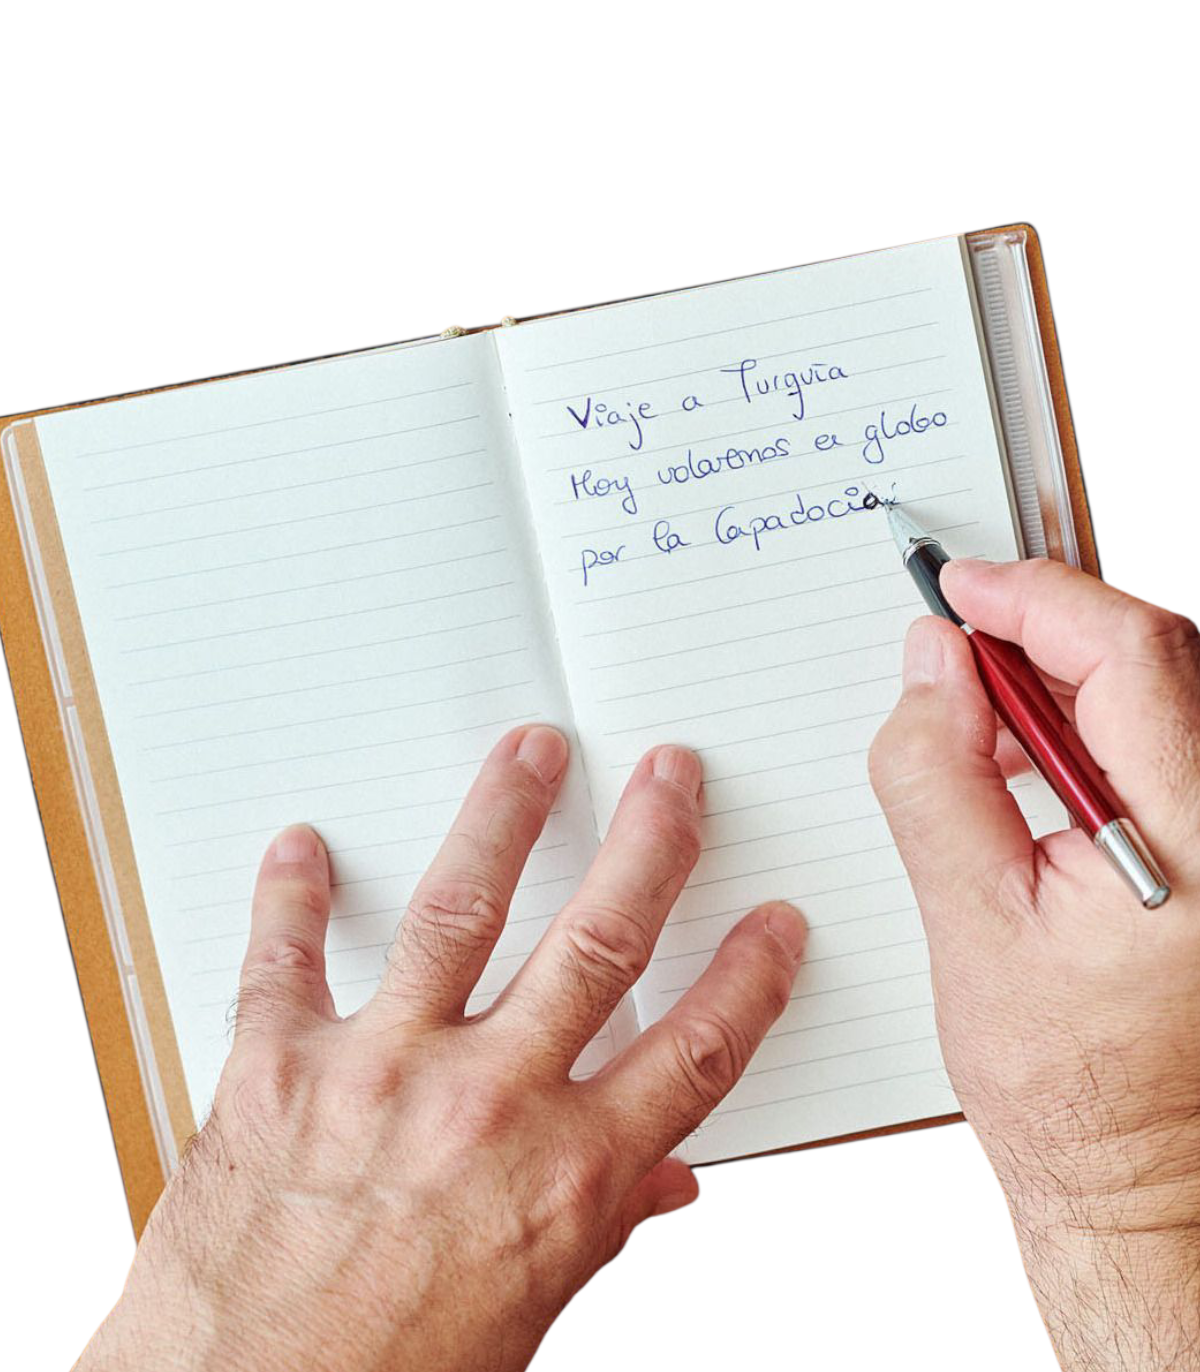 Viaje a Turquía
Hoy volaremos en globo
por la Capadocia